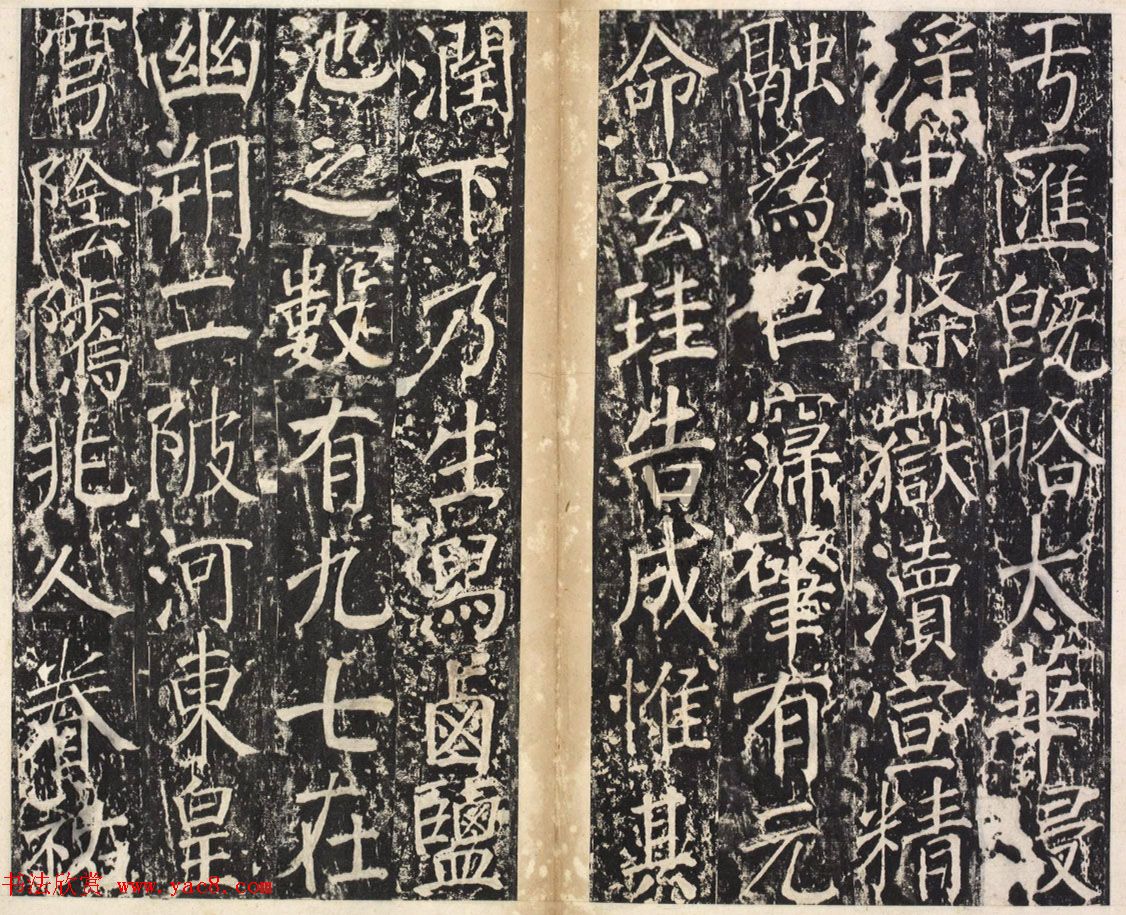 丂匯既略太華浸
淫中條嶽瀆宣精
融為巨寖肇有元
命玄珪告成惟其
潤下乃生舄鹵鹽
池之數有九七在
幽朔二陂河東皇
穹陰隲兆人眷祐
书法欣赏 www.yac8.com